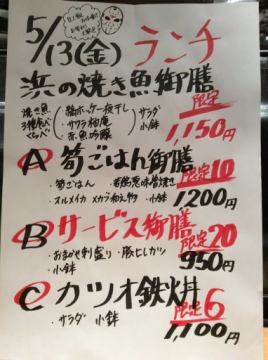 5/13(金) ランチ
浜の焼き魚御膳
限定
焼き魚 3種食べくらべ
・縞ホッケ一夜干し
・サワラ柚庵
・赤魚吟醸
サラダ
小鉢
1,150円
A 筍ごはん御膳 限定10
・筍ごはん
・オルメイカ メカブ和え物 小鉢
1,200円
B サービス御膳 限定20
・おまかせ刺し盛り ・豚ヒレカツ
・小鉢
950円
C カツオ鉄火丼 限定6
・サラダ 小鉢
1,100円